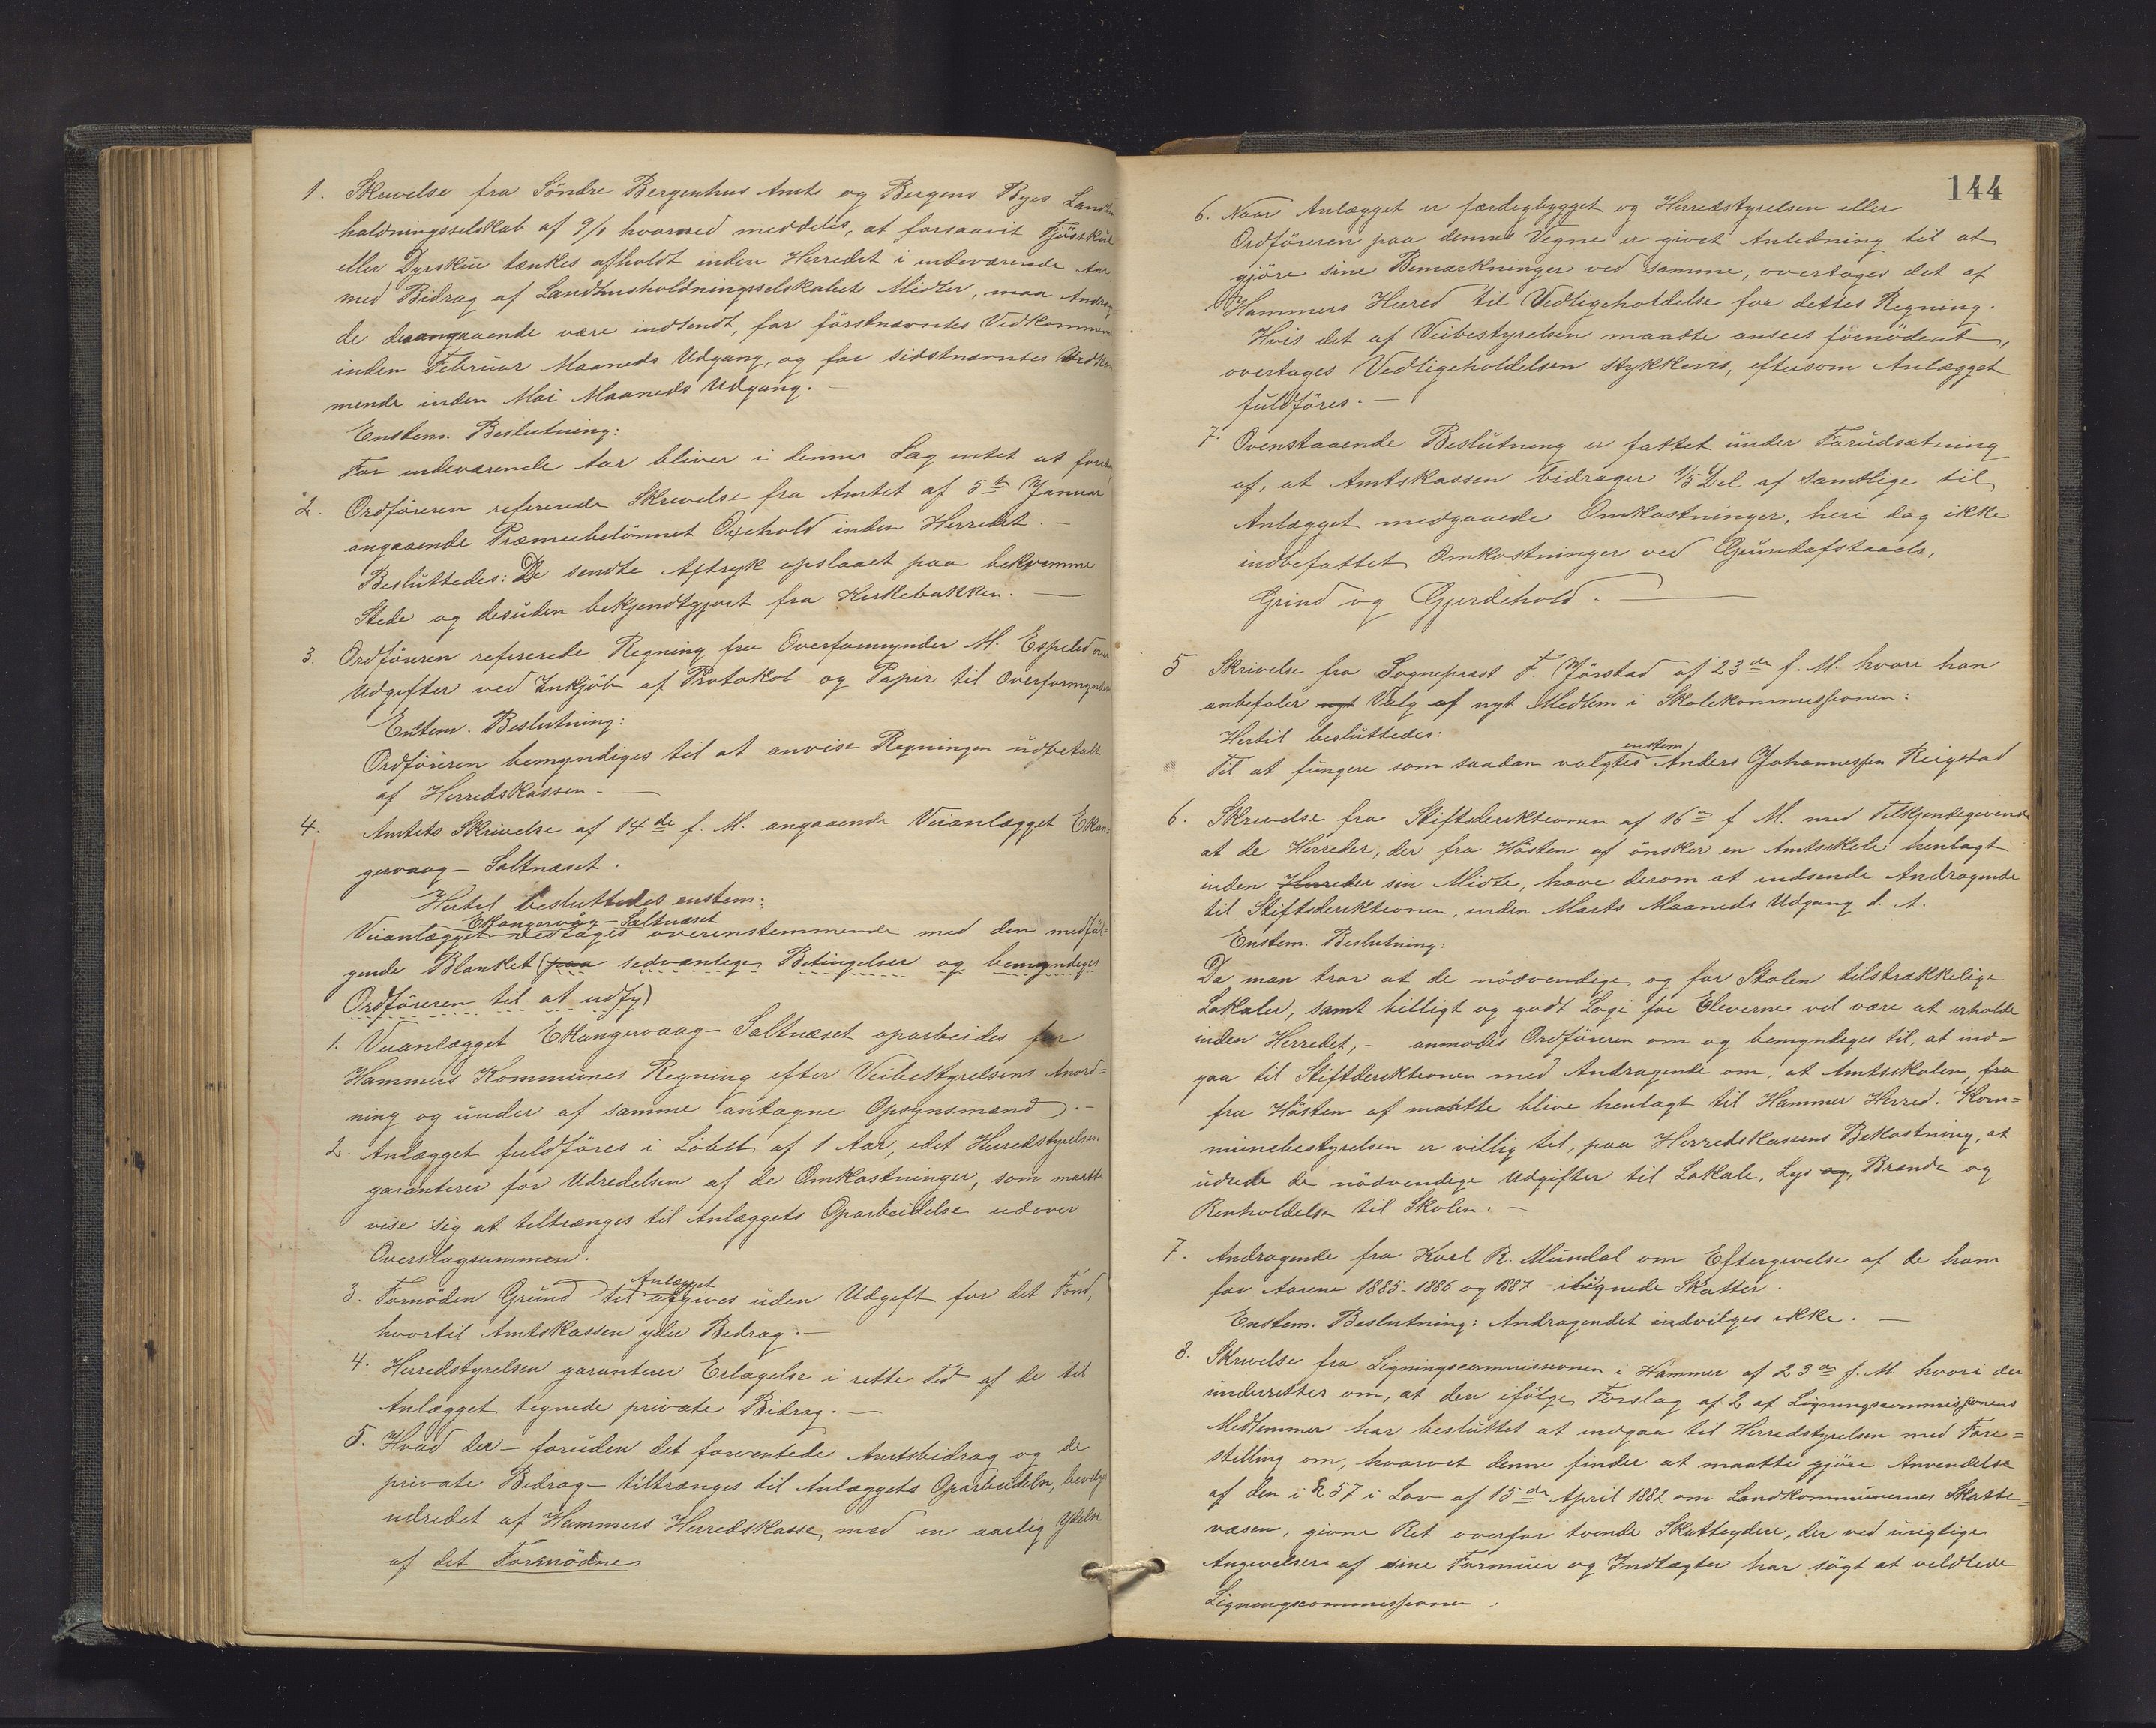 1. Skrivelse fra Söndre Bergenhus Amts og Bergens Byes Landhus
holdningsselskab af 9/1 hvormed meddeles, at forsaavit Fjösskue
eller Dyrskue tænkes afholdt inden Herredet i indeværende Aar
med Bidrag af Landhusholdningsselskabets Midler, maa Andragen
de desangaaende være indsendt, for förstnævntes Vedkommen
inden Februar Maaneds Udgang, og for sidstnævntes Vedkom
mende inden Mai Maaneds Udgang. —
Enstem. Beslutning:
For indeværende Aar bliver i denne Sag intet at foretage
2. Ordföreren refererede Skrivelse fra Amtet af 5te Januar
angaaende Præmiebelönnet Oxehold inden Herredet. —
Besluttedes: De sendte Aftryk opslaaet paa bekvemme
Stede og desuden bekjendtgjort fra Kirkebakken. —
3. Ordföreren refererede Regning fra Overformynder M. Espelid over
Udgifter ved Inkjöb af Protokol og Papir til Overformynderi
Enstem. Beslutning:
Ordföreren bemyndiges til at anvise Regningen udbetalt
af Herredskassen. —
4. Amtets Skrivelse af 14de f. M. angaaende Veianlægget Ekan=
gervaag — Saltnæset.
Hertil besluttedes enstem:
Ekangervåg — Saltnæset
Veianlægget vedtages overenstemmende med den medföl=
gende Blanket (paa sedvanlige Betingelser og bemyndiges
Ordföreren til at udfy)
1. Veianlægget Ekangervaag — Saltnæset oparbeides for
Hammers Kommunes Regning efter Veibestyrelsens Anord=
ning og under af samme antagne Opsynsmænd. —
2. Anlægget fuldföres i Löbet af 1 Aar, idet Herredstyrelsen
garanterer for Udredelsen af de Omkostninger, som maatte
vise sig at tiltrænges til Anlæggets Oparbeidelse udover
Overslagsummen.
Anlægget
3. Fornöden Grund til afgives uden Udgift for det Fond,
hvortil Amtskassen yder Bidrag. —
4. Herredstyrelsen garanterer Erlægelse i rette Tid af de til
Anlægget tegnede private Bidrag. —
5. Hvad der — foruden det forventede Amtsbidrag og de
private Bidrag — tiltrænges til Anlæggets Oparbeidelse, bevilges
udredet af Hammers Herredskasse med en aarlig Ydelse
af det Fornödne
144
6. Naar Anlægget er færdigbygget og Herredstyrelsen eller
Ordföreren paa dennes Vegne er givet Anledning til at
gjöre sine Bemærkninger ved samme, overtages det af
Hammers Herred til Vedligeholdelse for dettes Regning.
Hvis det af Veibestyrelsen maatte ansees förnödent,
overtages Vedligeholdelsen stykkevis, eftersom Anlægget
fuldföres. —
7. Ovenstaaende Beslutning er fattet under Forudsætning
af, at Amtskassen bidrager 1/5 Del af samtlige til
Anlægget medgaaede Omkostninger, heri dog ikke
indbefattet Omkostninger ved Grundafstaaels,
Grind og Gjerdehold. —
5 Skrivelse fra Sogneprest F. Jörstad af 23de f. M. hvori han
anbefaler nyt Valg af nyt Medlem i Skolekommissionen:
Hertil besluttedes:
enstem.
Til at fungere som saadan valgtes Anders Johannessen Reigstad
6. Skrivelse fra Stiftsdirektionen af 16de f M. med Tilkjendegivende
at de Herreder, der fra Hösten af önsker en Amtsskole henlagt
inden Herreder sin Midte, have derom at indsende Andragende
til Stiftsdirektionen, inden Marts Maaneds Udgang d. A.
Enstem. Beslutning:
Da man tror at de nödvendige og for Skolen tilstrækkelige
Lokaler, samt billigt og godt Logi for Eleverne vil være at erholde
inden Herredet, — anmodes Ordföreren om og bemyndiges til, at ind=
gaa til Stiftdirektionen med Andragende om, at Amtsskolen, fra
fra Hösten af maatte blive henlagt til Hammer Herred. Kom=
munebestyrelsen er villig til, paa Herredskassens Bekostning, at
udrede de nödvendige Udgifter til Lokale, Lys og, Brænde og
Renholdelse til Skolen. —
7. Andragende fra Karl R. Mundal om Eftergivelse af de ham
for Aarene 1885 - 1886 og 1887 ilignede Skatter.
Enstem. Beslutning: Andragendet indvilges ikke. —
8. Skrivelse fra Ligningscommissionen i Hammer af 23de f. M. hvori der
underrettes om, at den ifölge Forslag af 2 af Ligningscommissionens
Medlemmer har besluttet at indgaa til Herredstyrelsen med Fore=
stilling om, hvorvit denne finder at maatte gjöre Anvendelse
af den i § 57 i Lov af 15de April 1882 om Landkommunernes Skatte=
væsen, givne Ret overfor tvende Skatteydere, der ved urigtige
Angivelser af sine Formuer og Indtægter har sögt at vildlede
Ligningscommissionen.